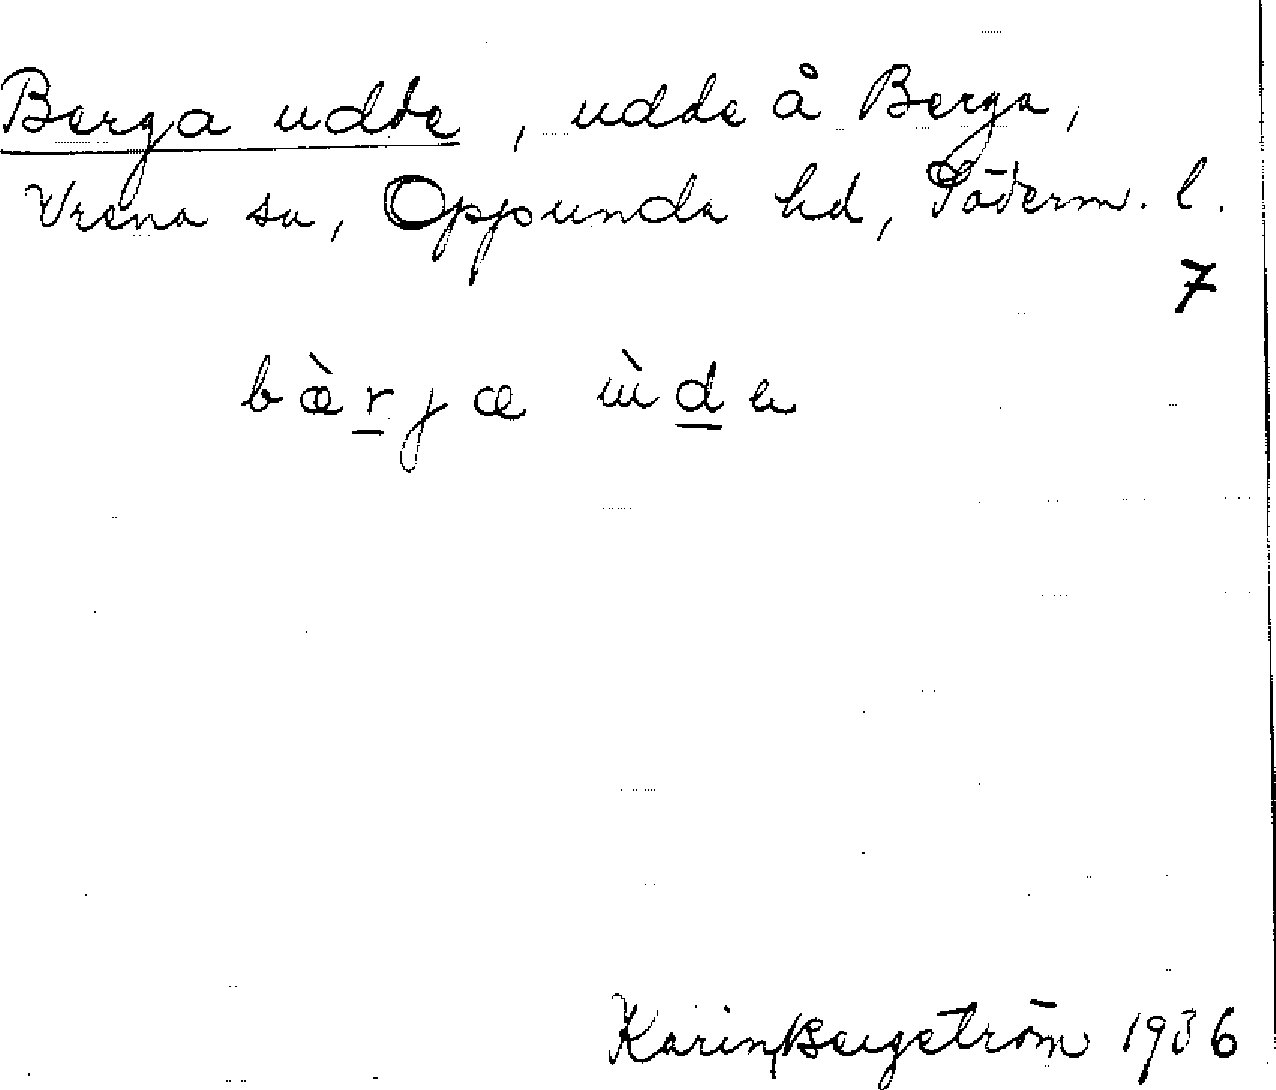 Berga udde, udde å Berga,
Vrena sn, Oppunda hd, Söderm. l.
7
bæ̀r̲jæ ùd̲e
Karin Bergström 1936